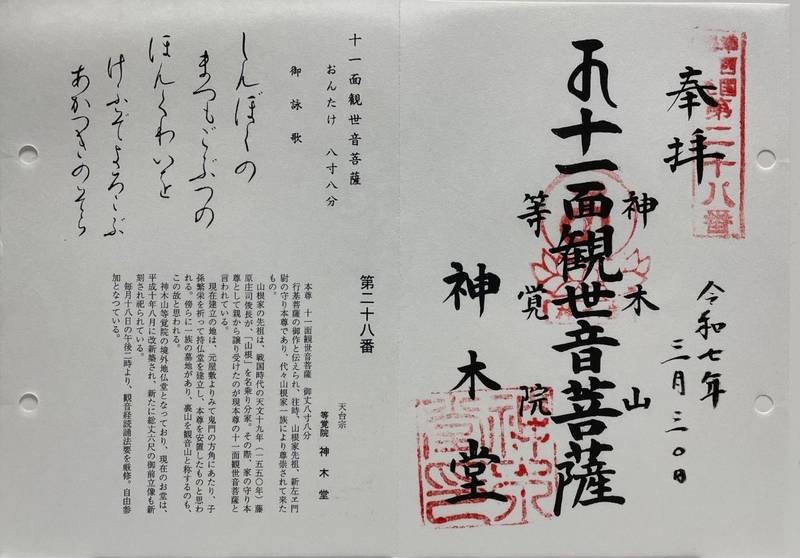 準西国第二十八番
奉拝
令和七年
三月三〇日
神木山
十一面観世音菩薩
等覚院
神木堂
十一面観世音菩薩
おんたけ 八寸八分
御詠歌
しんぼくの
まつもごぶつの
ほんぐわいを
けふぞよろこぶ
あかつきのそら
第二十八番
天台宗
等覚院 神木堂
本尊 十一面観世音菩薩 御丈八寸八分
行基菩薩の御作と伝えられ、往時、山根家先祖、新左ヱ門
尉の守り本尊であり、代々山根家一族により尊崇されて来た
もの。
山根家の先祖は、戦国時代の天文十九年(一五五〇年)藤
原庄司俊長が、「山根」を名乗り分家。その際、家の守り本
尊として親から譲り受けたのが現本尊の十一面観世音菩薩と
言われている。
現在建立の地は、元屋敷よりみて鬼門の方角にあたり、子
孫繁栄を祈って持仏堂を建立し、本尊を安置したものと思わ
れる。傍らに一族の墓地があり、裏山を観音山と称するのも、
この故と思われる。
神木山等覚院の境外地仏堂となっており、現在のお堂は、
平成十年八月に改新築され、新たに総丈六尺の御前立像も新
刻され祀られている。
毎月十八日の午後二時より、観音経読誦法要を厳修。自由参
加となっている。